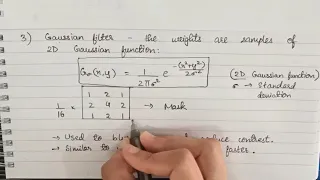 3) Gaussian filter - the weights are samples of
2D Gaussian function:
Gσ(x,y) = 1/2πσ² e^-(x²+y²)/2σ² (2D Gaussian function)
σ → Standard deviation
1/16 ×
1 2 1
2 4 2
1 2 1
→ Mask
→ Used to reduce contrast.
→ Similar to faster.